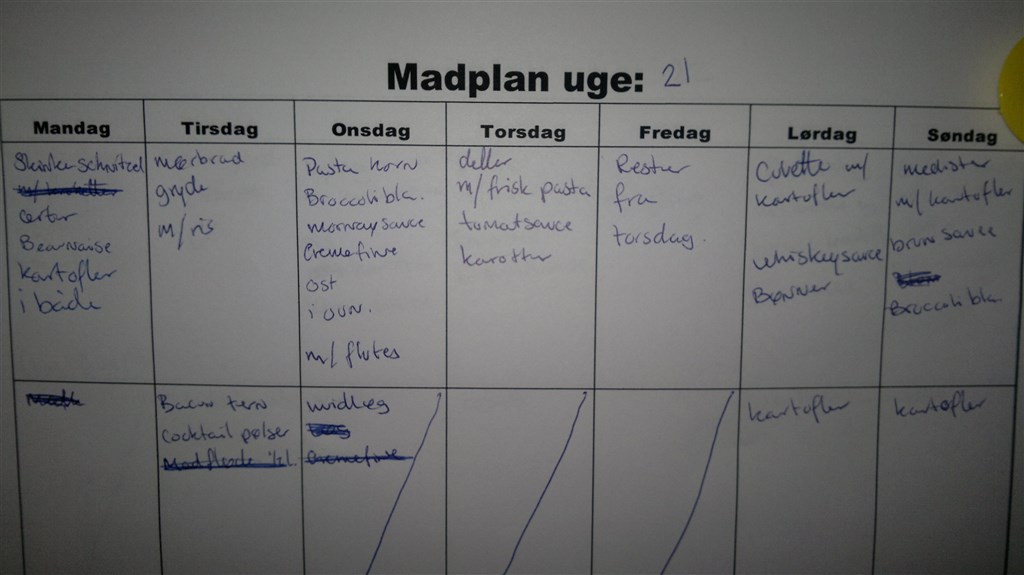 Madplan uge: 21
Mandag
Tirsdag
Onsdag
Torsdag
Fredag
Lørdag
Søndag
Skinkeschnitzel
ærter
Bearnaise
kartofler
i både
mørbrad
gryde
m/ris
Pasta horn
Broccolibla.
mornaysauce
Cremefine
ost
i ovn.
m/ flutes
deller
m/ frisk pasta
tomatsauce
karotter
Rester
fra
torsdag.
Cuvette m/
kartofler
whiskeysauce
Bønner
medister
m/ kartofler
brun sauce
Broccolibla.
Bacon tern
Cocktail pølser
Madfløde 1/2 l
hvidløg
Cremefine
kartofler
kartofler